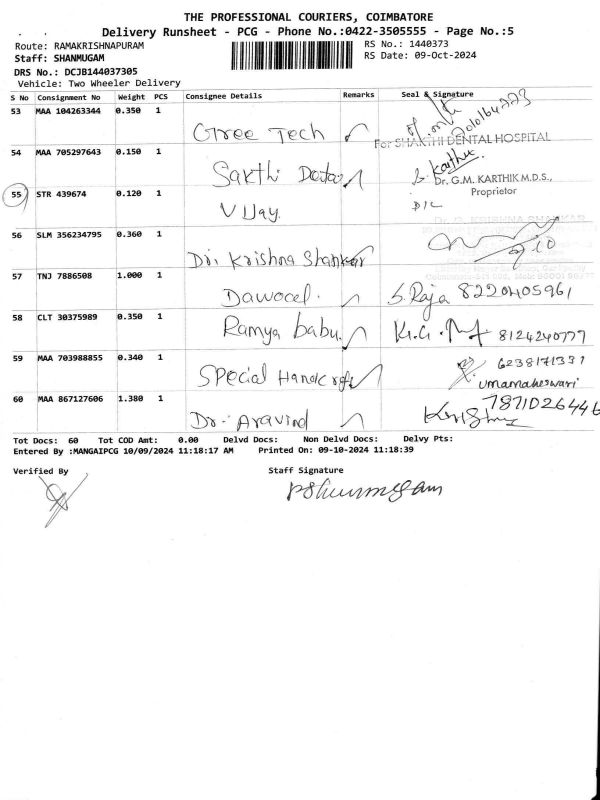 THE PROFESSIONAL COURIERS, COIMBATORE
Delivery Runsheet - PCG - Phone No.:0422-3505555 - Page No.:5
Route: RAMAKRISHNAPURAM
RS No.: 1440373
Staff: SHANMUGAM
RS Date: 09-Oct-2024
DRS No.: DCJB144037305
Vehicle: Two Wheeler Delivery
S No Consignment No Weight PCS Consignee Details Remarks Seal & Signature
53 MAA 104263344 0.350 1 Gree Tech
For SHAKTHI DENTAL HOSPITAL
54 MAA 705297643 0.150 1 Sakthi Dental
Karthik
Dr. G.M. KARTHIK M.D.S.,
Proprietor
55 STR 439674 0.120 1 Vijay
D/C
56 SLM 356234795 0.360 1 Dr. Krishna Shankar
57 TNJ 7886508 1.000 1 Dawood. S. Raja 8220405961
58 CLT 30375989 0.350 1 Ramya babu. 8124240777
59 MAA 703988855 0.340 1 Special Handcrafts
umamaheswari
60 MAA 867127606 1.380 1 Dr. Aravind 7871026446
Tot Docs: 60 Tot COD Amt: 0.00 Delvd Docs: Non Delvd Docs: Delvy Pts:
Entered By :MANGAIPCG 10/09/2024 11:18:17 AM Printed On: 09-10-2024 11:18:39
Verified By Staff Signature